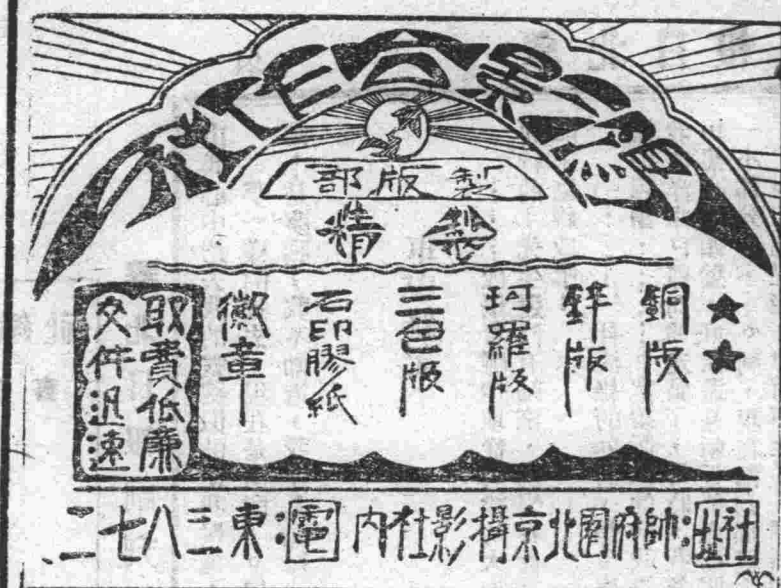 製版部
精製
★★
銅版
鋅版
珂羅版
三色版
石印膠紙
徽章
取費低廉
交件迅速
社址:帥府園北京攝影社內 電:東三八七二